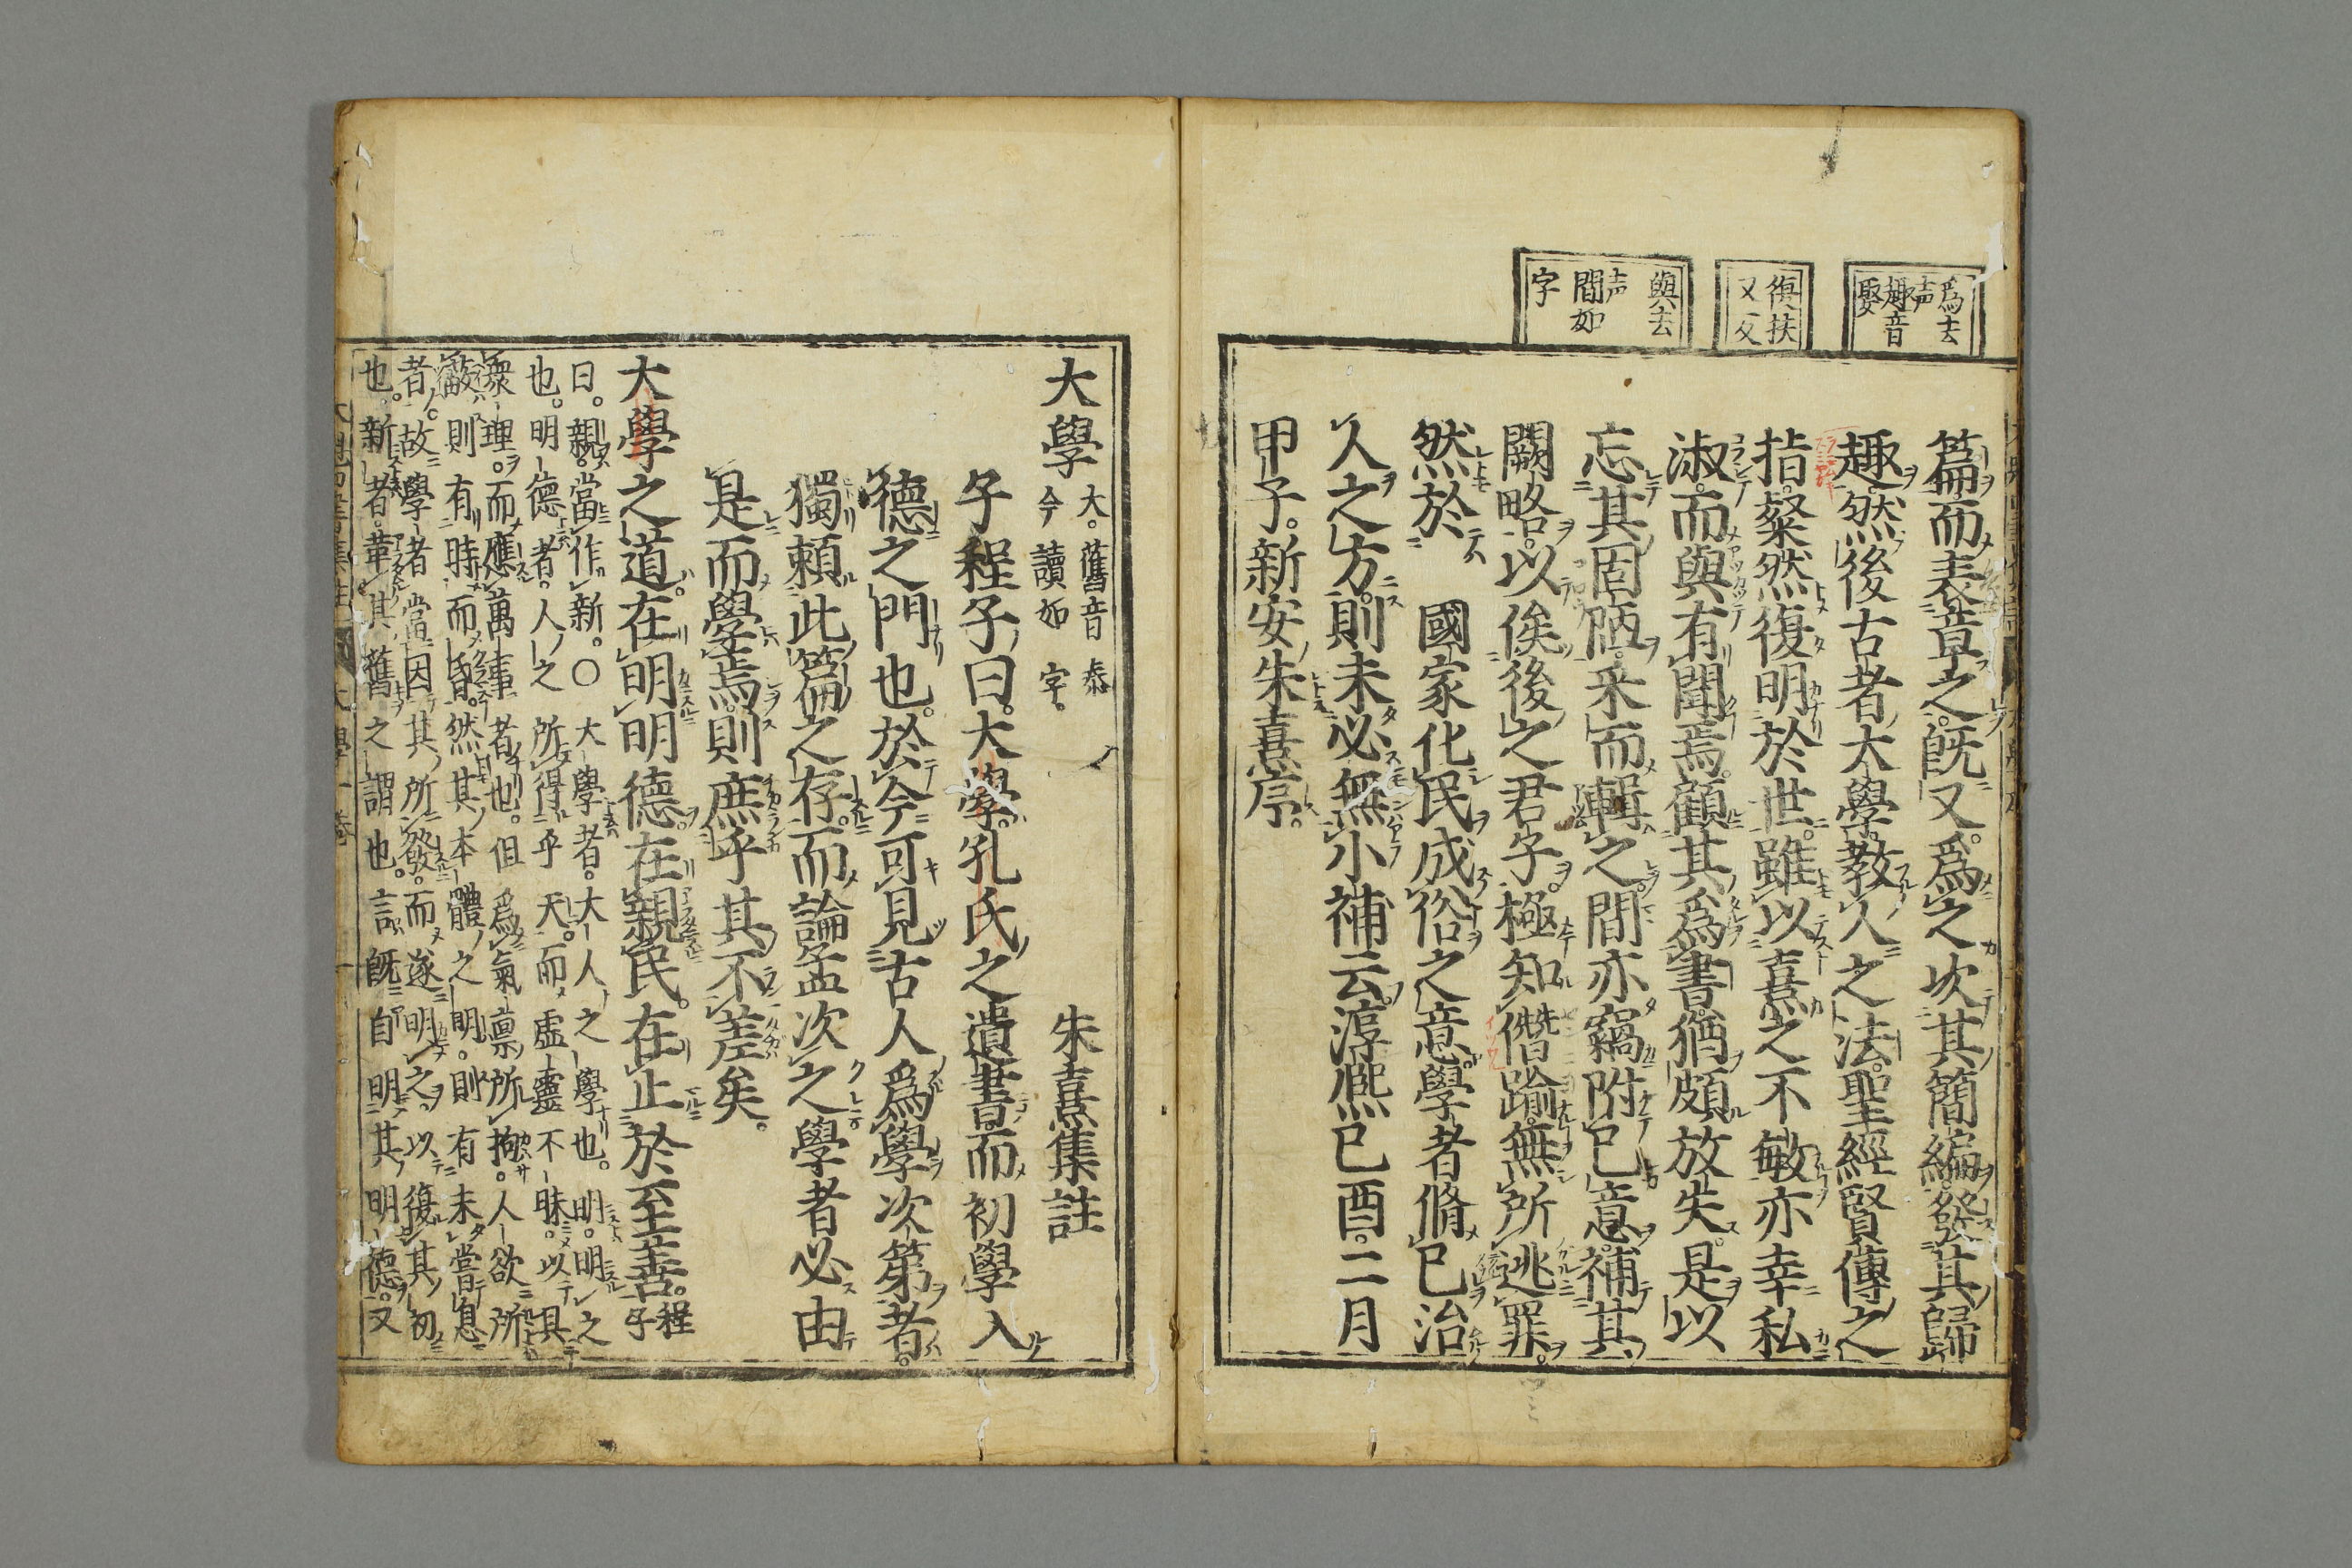 爲去
声
趣音
娶
復扶
又反
與去
声
間如
字
篇而表章之。旣又。爲之次其簡編。發其歸
趣。然後古者大學教人之法。聖經賢傳之
指。粲然復明於世。雖以熹之不敏亦幸私
淑。而與有聞焉。顧其爲書。猶頗放失。是以
忘其固陋。采而輯之間亦竊附己意。補其
闕略。以俟後之君子。極知僭踰。無所逃罪。
然於　國家化民成俗之意。學者脩己治
人之方。則未必無小補云。淳熈己酉。二月
甲子。新安朱熹序。
大學 大。舊音泰
今讀如字。
朱熹集註
子程子曰。大學。孔氏之遺書。而初學入
德之門也。於今可見古人爲學次第者。
獨頼此篇之存。而論孟次之學者必由
是而學焉。則庶乎其不差矣。
大學之道。在明明德。在親民。在止於至善。程子
曰。親。當作新。○大學者。大人之學也。明。明之
也。明德者。人之所得乎天。而虛靈不昧。以具
衆理。而應萬事者也。但爲氣禀所拘。人欲所
蔽則有時而昏。然其本體之明。則有未嘗息
者。故學者當因其所發。而遂明之。以復其初
也。新者。革其舊之謂也。言旣自明其明德。又